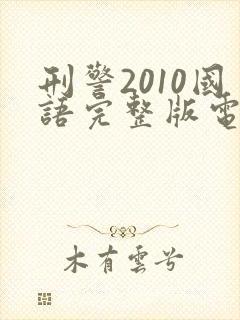 刑警2010國
語完整版電
木有雲兮